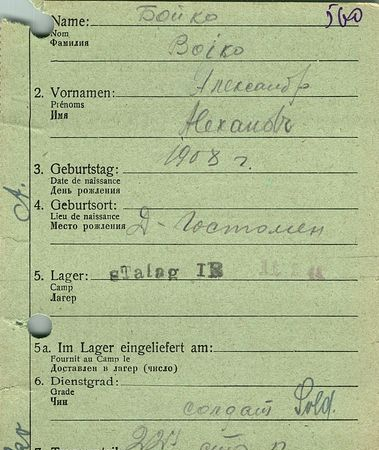 560
Name: Бойко
Nom
Фамилия
Boiko
2. Vornamen: Александр
Prénoms
Имя
3. Geburtstag: 1908 г.
Date de naissance
День рождения
4. Geburtsort:
Lieu de naissance
Место рождения Д-Гостомен
5. Lager: sTalag IB
Camp
Лагер
5a. Im Lager eingeliefert am:
Fournit au Camp le
Доставлен в лагер (число)
6. Dienstgrad:
Grade
Чин
солдат Sold.